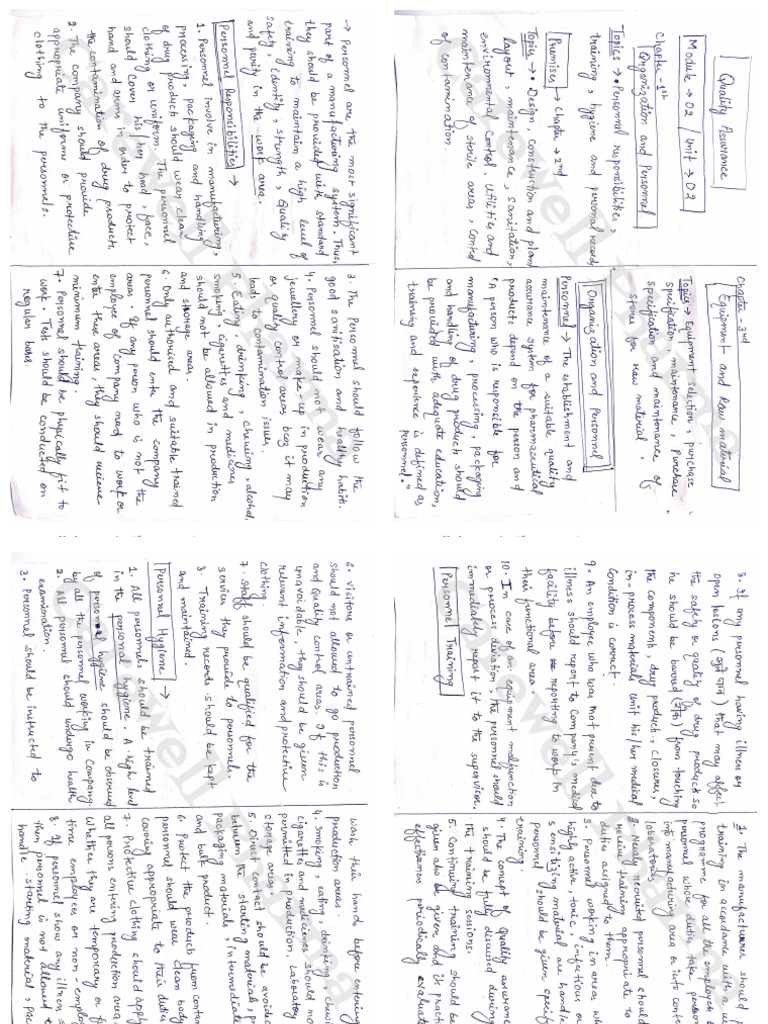 Quality Assurance
Module → 02 / Unit → 02
Chapter - 1st
Organization and Personnel
Topics → • Personnel responsibilities,
training, hygiene and personal records
Premises → Chapter → 2nd
Topic → • Design, Construction and plant
layout, maintenance, sanitation,
environmental control, utilities and
maintenance of sterile area, control
of contamination.
Chapter - 3rd
Equipment and Raw material
Topics → Equipment selection, purchase
specification, maintenance, Purchase
specification and maintenance of
stores for raw material.
Organization and Personnel
Personnel → The establishment and
maintenance of a suitable quality
assurance system for pharmaceutical
products depend on the person and
"A person who is responsible for
manufacturing, processing, packaging
and handling of drug products should
be provided with adequate education,
training and experience is defined as
personnel."
→ Personnel are the most significant
part of a manufacturing system. Thus,
they should be provided with standard
training to maintain a high level of
safety, identity, strength, quality
and purity in the work area.
Personnel Responsibilities →
1. Personnel involve in manufacturing,
processing, packaging and handling
of drug products should wear clean
clothing or uniform. The personnel
should cover his/her head, face,
hand and arms in order to protect
the contamination of drug products
2. The company should provide
appropriate uniforms or protective
clothing to the personnels.
3. The Personnel should follow the
good sanitisation and healthy habit.
4. Personnel should not wear any
jewellery or make-up in production
or quality control areas bcz it may
lead to contamination issues.
5. Eating, drinking, chewing, alcohol,
smoking, cigarettes and medicines
should not be allowed in production
and storage area.
6. Only authorized and suitable trained
personnel should enter the company
area. If any person who is not the
employee of company need to work or
enter these areas, they should recieve
minimum training.
7. Personnel should be physically fit to
work. Task should be conducted on
regular basis.
8. If any personnel having illness or
open lesions ( ) that may affect
the safety or quality of drug products so
he should be barred (रोक) from touching
the components, drug product, closures,
in-process materials until his/her medical
condition is correct.
9. An employee who was not present due to
illness should report to Company's medical
facility before reporting to work in
their functional area.
10. In case of an equipment malfunction
or process deviation, the personnel should
immediately report it to the supervisor.
Personnel Training
1. The manufacturer should p
training in accordance with a w
programme for all the employees
personnel whose duties take
into manufacturing area or into cont
laboratories
2. Newly recruited personnel should
recieve training appropriate to
duties assigned to them.
3. Personnel working in area wh
highly active, toxic, infectious or
sensitizing material are handle
personnel should be given specif
training.
4. The concept of quality assurance
should be fully discussed during
the training sessions.
5. Continuing training should be
given also be given and its practi
effectiveness periodically evaluate
6. Visitors or untrained personnel
should not allowed to go production
and Quality control areas. If this is
unavoidable, they should be given
relevant information and protective
clothing
7. Staff should be qualified for the
service they provide to personnels.
8. Training records should be kept
and maintained
Personnel Hygiene →
1. All personnels should be trained
in the personal hygiene. A high level
of personal hygiene should be observed
by all the personnel working in Company.
2. All personnel should undergo health
examination.
3. Personnel should be instructed to
wash their hand before entering
production areas.
4. Smoking, eating, drinking, chewi
cigarettes and medicines should no
permitted in production, Laboratory
storage areas.
5. Direct contact should be avoide
between the starting materials, p
packaging materials, intermediate
and bulk product.
6. Protect the products from contam
personnel should wear clean body
covering appropriate to their duties
7. Protective clothing should apply
all persons entering production area.
Whether they are temporary or f
time employees or non-employ
8. If personnel show any illness, s
then personnel is not allowed t
handle starting material, pac